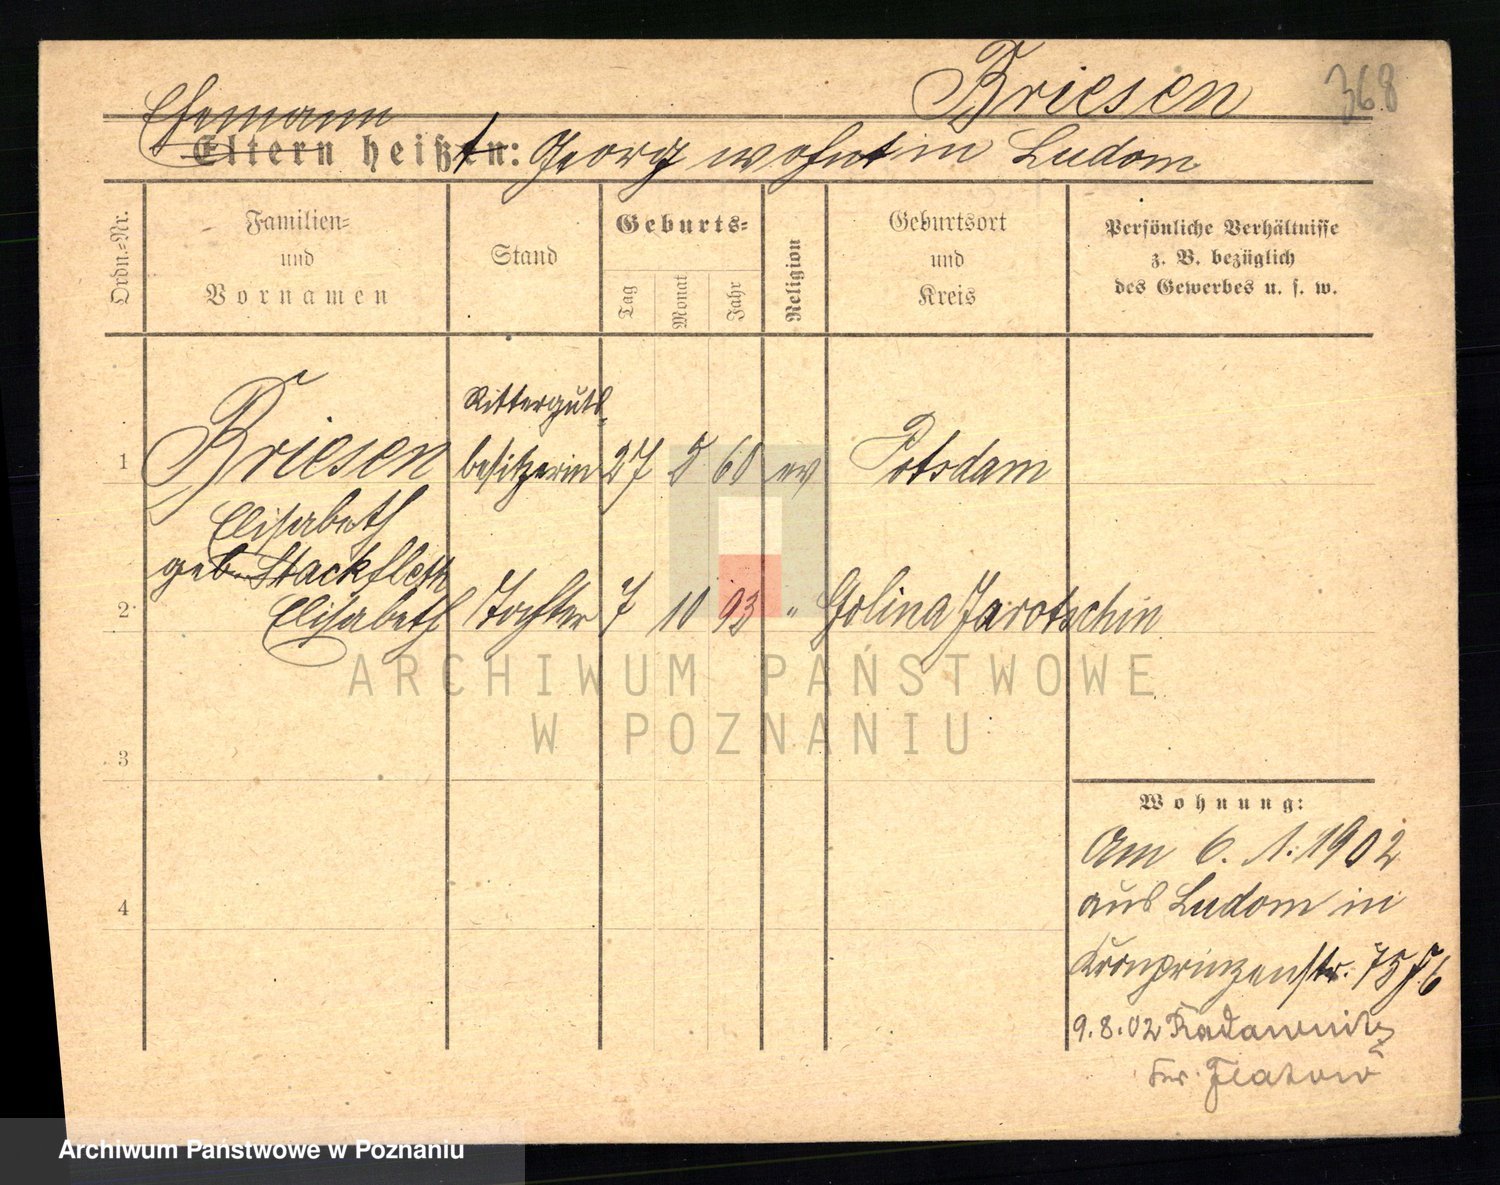 Briesen 368
Ehemann
Eltern heißt: Georg wohnt in Ludom
Ordn.-Nr.
Familien-
und
Vornamen
Stand
Geburts-
Tag
Monat
Jahr
Religion
Geburtsort
und
Kreis
Persönliche Verhältnisse
z. B. bezüglich
des Gewerbes u. s. w.
Ritterguts-
1 Briesen besitzerin 27 5 60 ev Potsdam
Elisabeth
geb. Stackfleth
2 Elisabeth Tochter 7 10 93 " Golina Jarotschin
ARCHIWUM PAŃSTWOWE
W POZNANIU
3
Wohnung:
Am 6. 1. 1902
4
aus Ludom in
Kronprinzenstr. 75/76
9.8.02 Radawnitz
Kr. Flatow
Archiwum Państwowe w Poznaniu